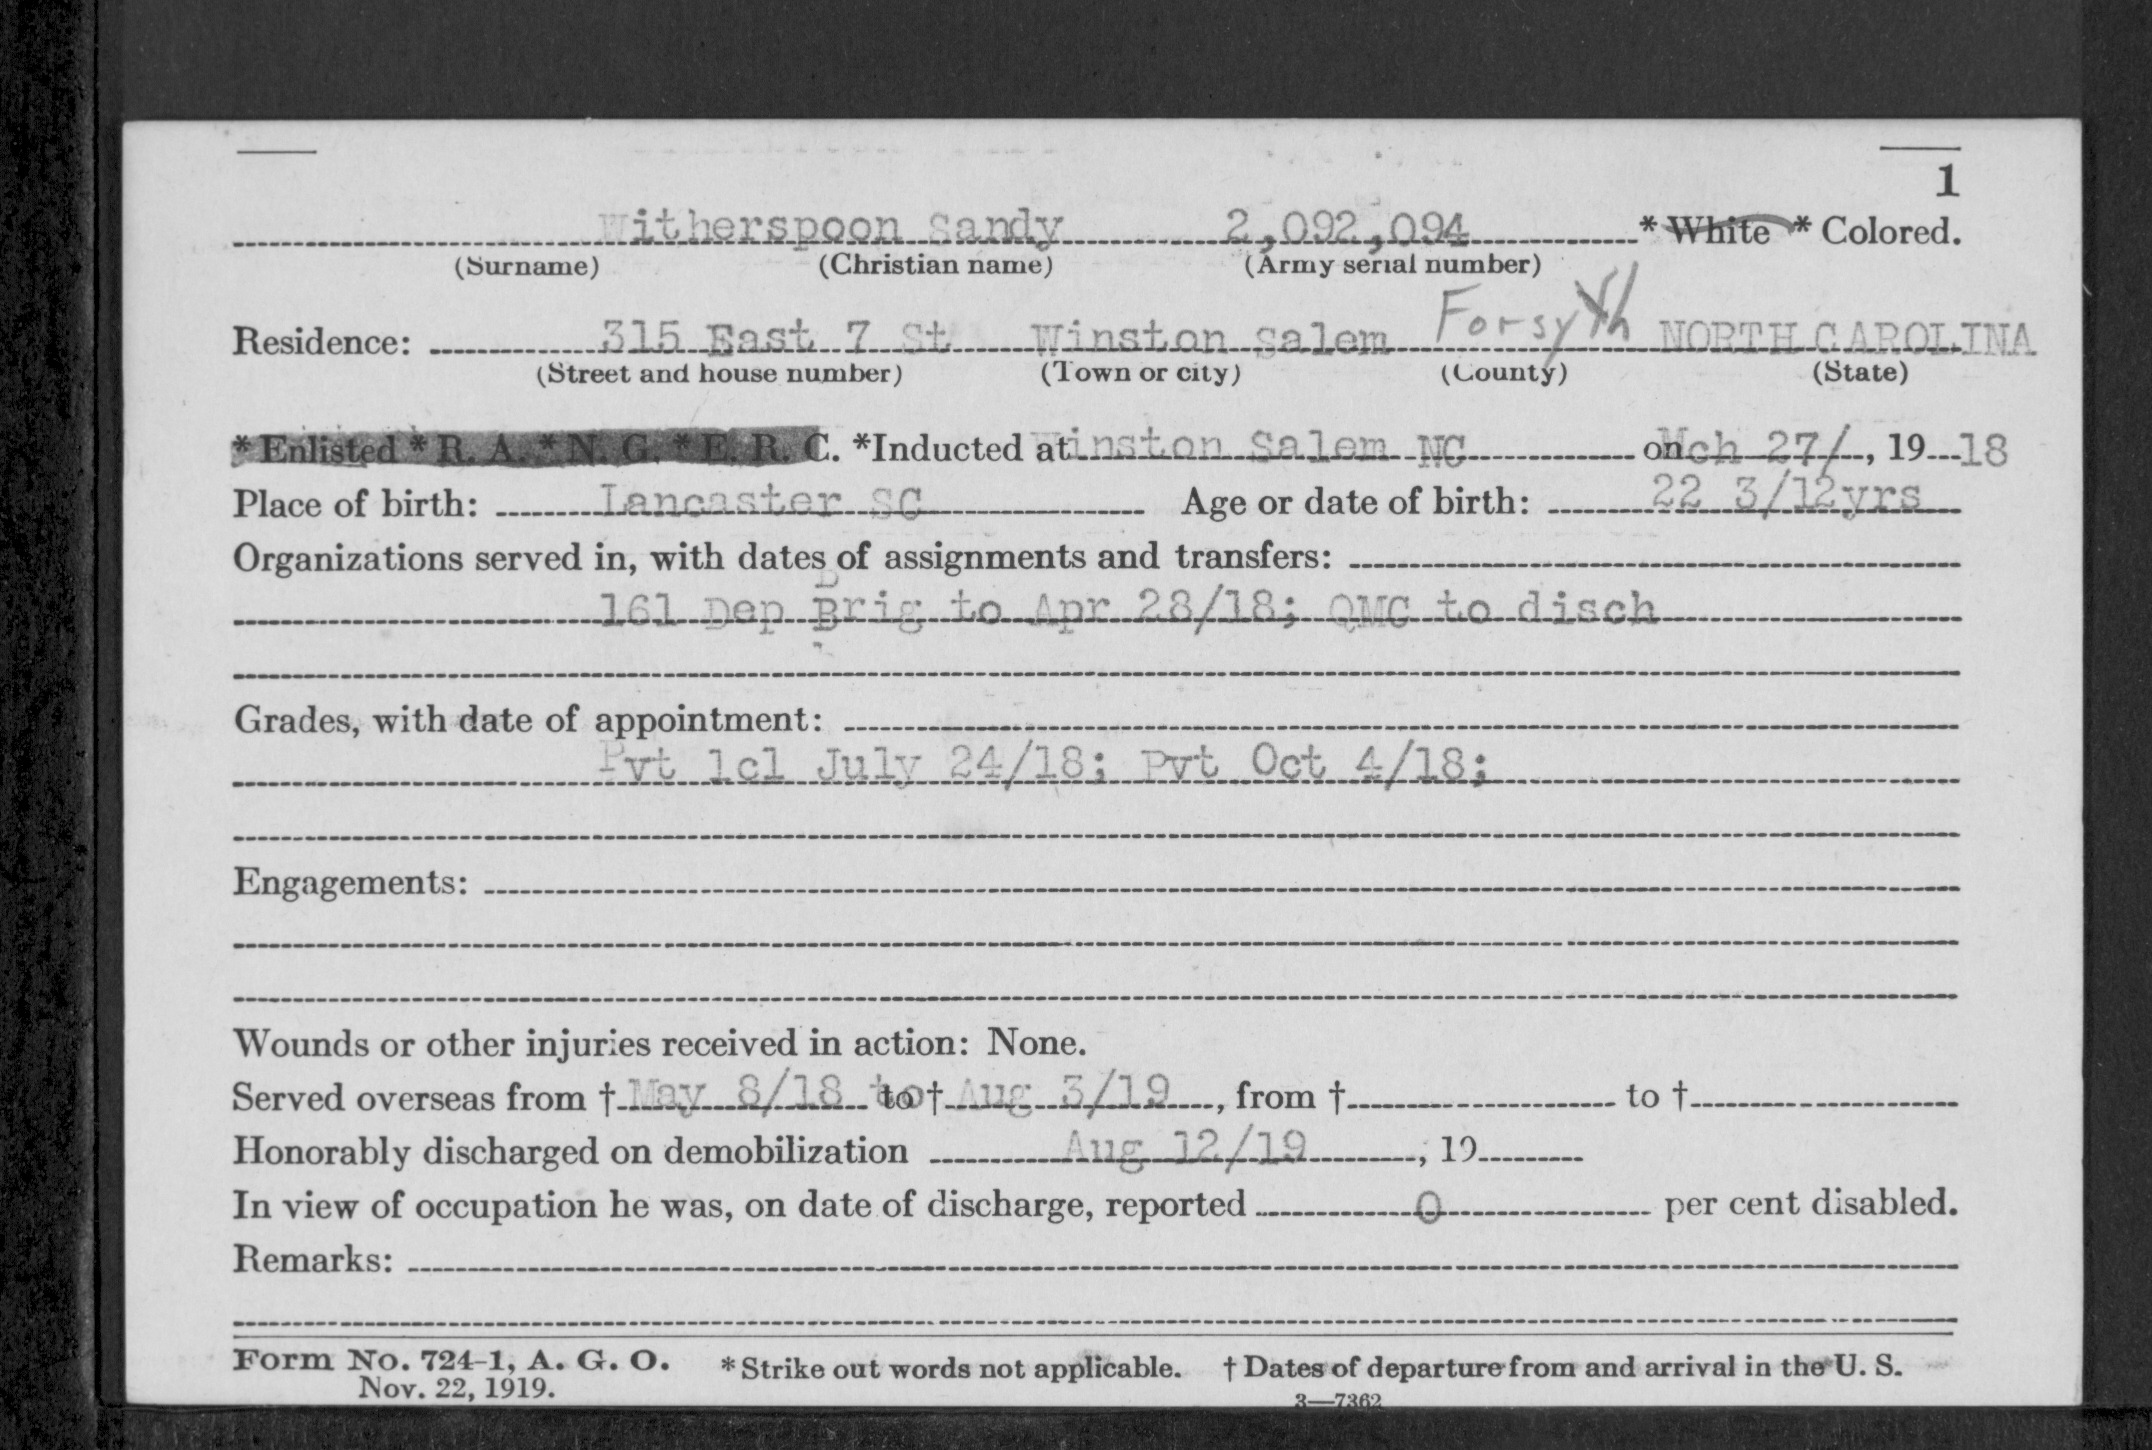 1
Witherspoon Sandy 2,092,094 * White * Colored.
(Surname) (Christian name) (Army serial number)
Residence: 315 East 7 St Winston Salem Forsyth NORTH CAROLINA
(Street and house number) (Town or city) (County) (State)
* Enlisted * R. A. * N. G. * E. R. C. *Inducted at Winston Salem NC on Mch 27/, 19 18
Place of birth: Lancaster SC Age or date of birth: 22 3/12yrs
Organizations served in, with dates of assignments and transfers:
161 Dep Brig to Apr 28/18; QMC to disch
Grades, with date of appointment:
Pvt 1cl July 24/18; Pvt Oct 4/18;
Engagements:
Wounds or other injuries received in action: None.
Served overseas from † May 8/18 to † Aug 3/19, from † to †
Honorably discharged on demobilization Aug 12/19, 19
In view of occupation he was, on date of discharge, reported 0 per cent disabled.
Remarks:
Form No. 724-1, A. G. O. * Strike out words not applicable. † Dates of departure from and arrival in the U. S.
Nov. 22, 1919. 3—7362